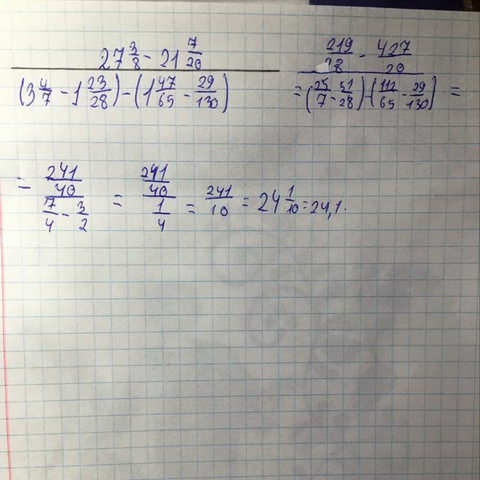 27 3/8 - 21 7/20
(3 4/7 - 1 23/28) - (1 47/65 - 29/130)
219/8 - 427/20
= (25/7 - 51/28) - (112/65 - 29/130) =
= 241/40 / (7/4 - 3/2) = 241/40 / 1/4 = 241/10 = 24 1/10 = 24,1.